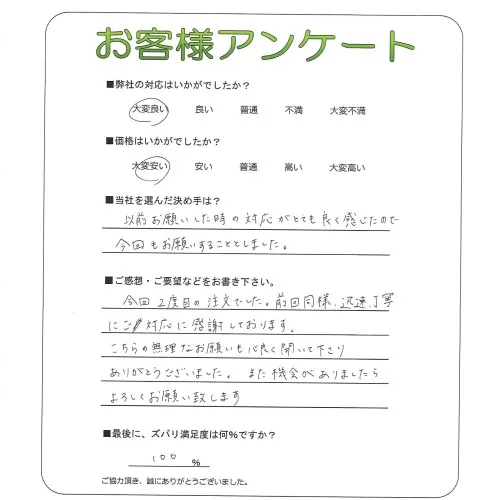 お客様アンケート
■弊社の対応はいかがでしたか？
大変良い 良い 普通 不満 大変不満
■価格はいかがでしたか？
大変安い 安い 普通 高い 大変高い
■当社を選んだ決め手は？
以前お願いした時の対応がとても良く感じたので
今回もお願いすることとしました。
■ご感想・ご要望などをお書き下さい。
今回2度目の注文でした。前回同様、迅速丁寧
にご対応に感謝しております。
こちらの無理なお願いも心良く聞いて下さり
ありがとうございました。また機会がありましたら
よろしくお願い致します
■最後に、ズバリ満足度は何％ですか？
100 %
ご協力頂き、誠にありがとうございました。